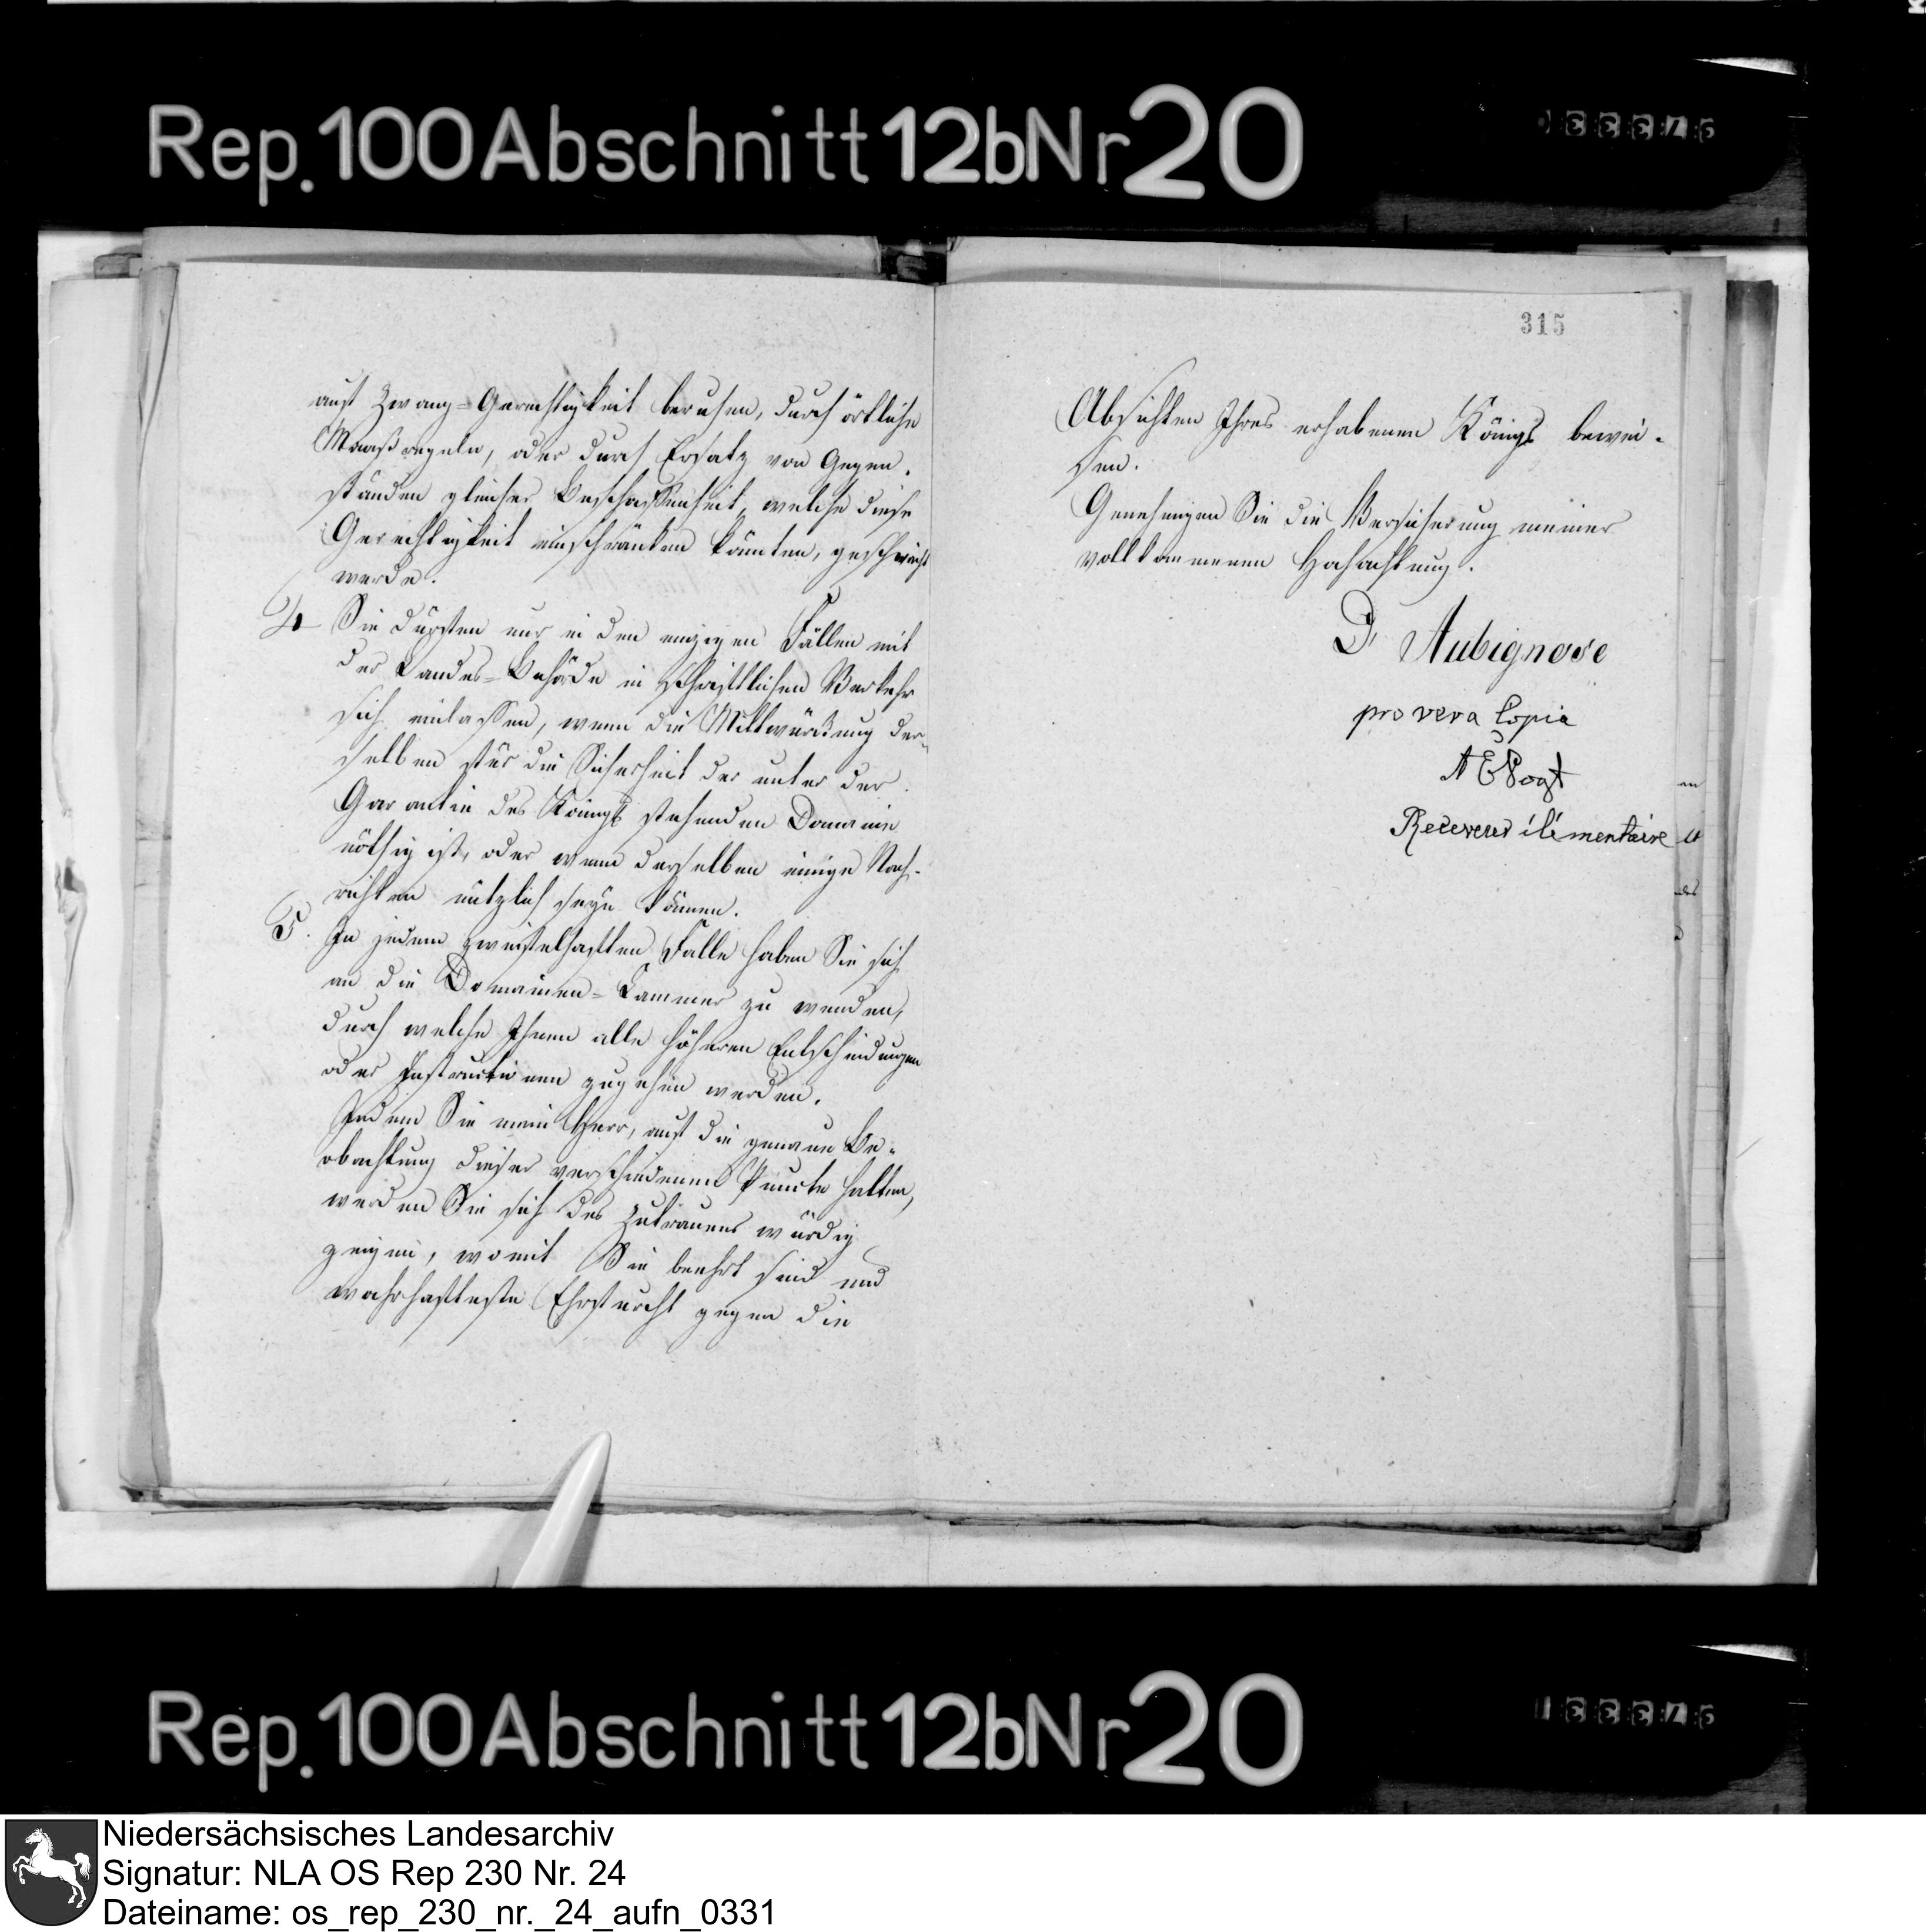 Rep. 100 Abschnitt 12b Nr 20
315
auf Zwang=Gerechtigkeit beruhen, durch örtliche
Maaßregeln, oder durch Ersatz von Gegen-
ständen gleicher Beschaffenheit, welche diese
Gerechtigkeit einschränken könnten, geschwächt
werde.
4 Sie dürften nur in den einzigen Fällen mit
der Landes=Behörde in schriftlichen Verkehr
sich einlassen, wenn die Mittwürkung der-
selben für die Sicherheit der unter der
Garantie des Königs stehenden Domaine
nöthig ist, oder wenn derselben einige Nach-
richten nützlich seyn können.
5. In jedem zweifelhaften Falle haben Sie sich
an die Domainen=Cammer zu wenden,
durch welche Ihnen alle höheren Entscheidungen
oder Instructionen zugehen werden.
Indem Sie mein Herr, auf die genaue Be-
obachtung dieser verschiedenen Puncte halten,
werden Sie sich des Zutrauens würdig
zeigen, womit Sie beehrt sind und
wahrhafteste Ehrfurcht gegen die
Absichten Ihres erhabenen Königs bewei-
sen.
Genehmigen Sie die Versicherung meiner
vollkommenen Hochachtung.
D'Aubignose
pro vera Copia
A E Vogt
Receveur élémentaire
Rep. 100 Abschnitt 12b Nr 20
Niedersächsisches Landesarchiv
Signatur: NLA OS Rep 230 Nr. 24
Dateiname: os_rep_230_nr._24_aufn_0331